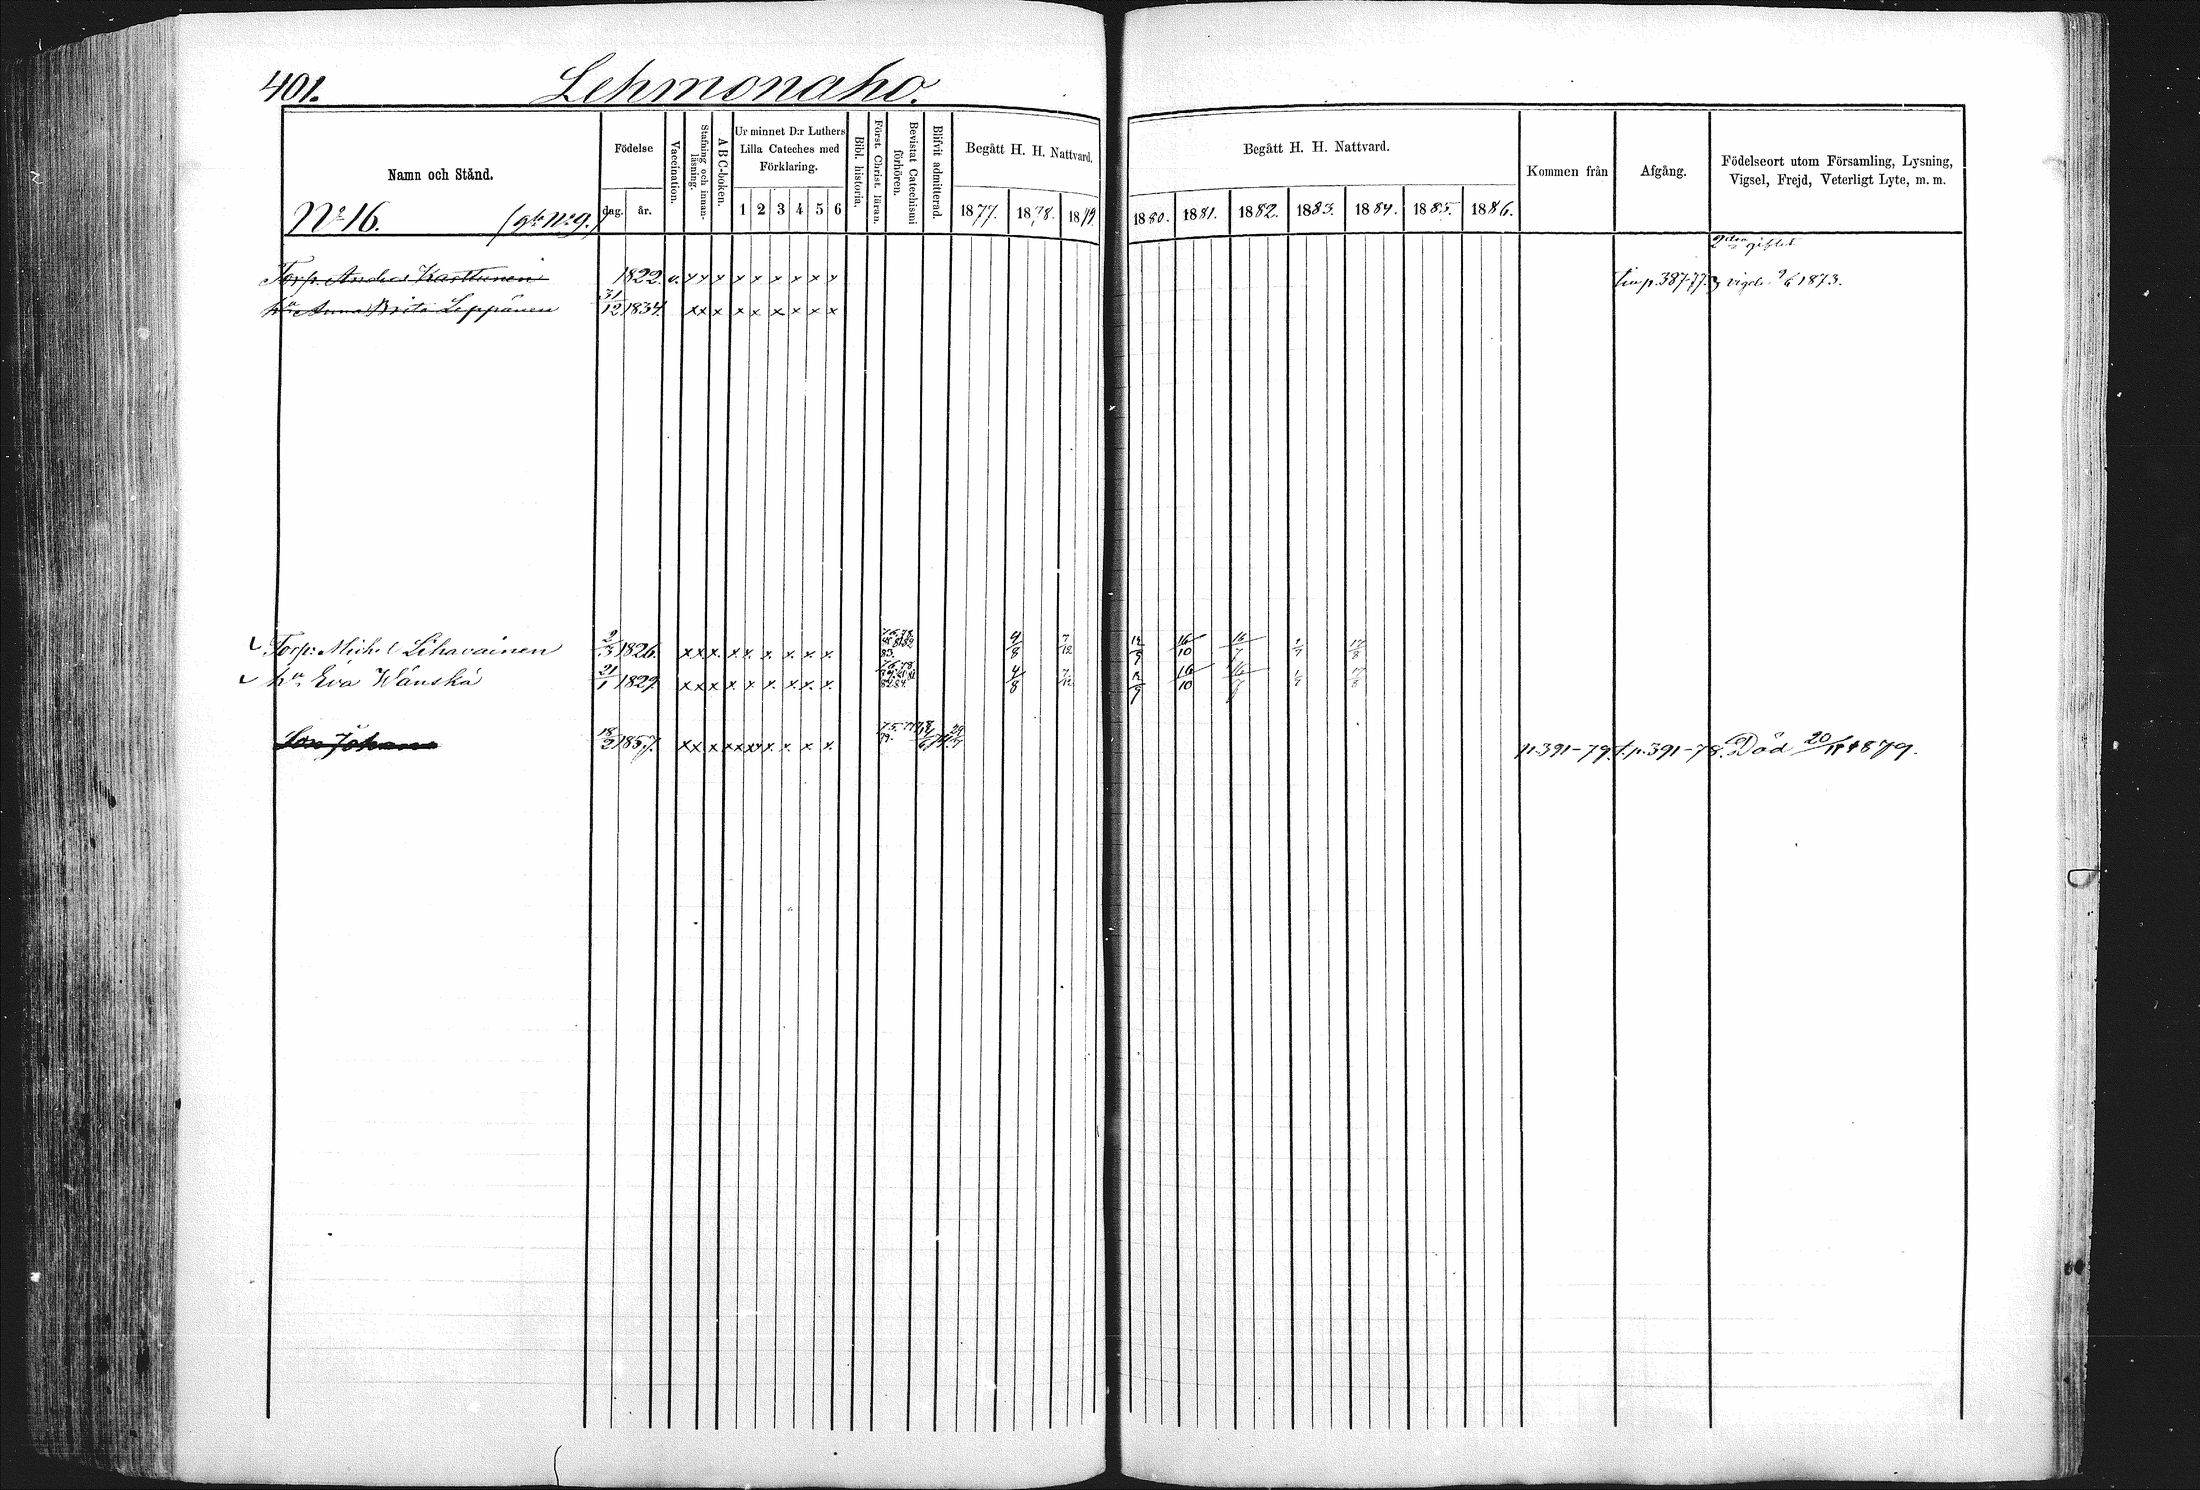 401. Lehmonaho.
Namn och Stånd.
Födelse
dag. år.
Vaccination.
Stafning och innan-läsning.
A B C-boken.
Ur minnet D:r Luthers
Lilla Cateches med
Förklaring.
1 2 3 4 5 6
Bibl. historia.
Först. Christ. läran.
Bevistat Catechismi förhören.
Blifvit admitterad.
Begått H. H. Nattvard.
1877. 1878. 1879
Begått H. H. Nattvard.
1880. 1881. 1882. 1883. 1884. 1885. 1886.
Kommen från
Afgång.
Födelseort utom Församling, Lysning,
Vigsel, Frejd, Veterligt Lyte, m. m.
No 16. (gl. No 9.)
giftet
Torp. Anders Karttunen 1822. v. x x x x x x x x x p. 387-77. 1873.
hu Anna Brita Leppänen 31/12 1834. x x x x x x x x x
Torp: Michel Lihavainen 2/3 1826. x x x x x x x x x 4/8 7/12 12/9 16/10 16/7 1/7 17/8
hu. Eva Wänskä 21/1 1829. x x x x x x x x x 4/8 7/12 12/9 16/10 16/7 1/7 17/8
Son Johan 18/2 1857. x x x x x x x x x p. 391-79. p. 391-78. Död 20/11 1879.